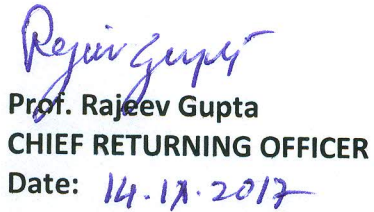 Rajeev Gupta
Prof. Rajeev Gupta
CHIEF RETURNING OFFICER
Date: 14.IX.2017